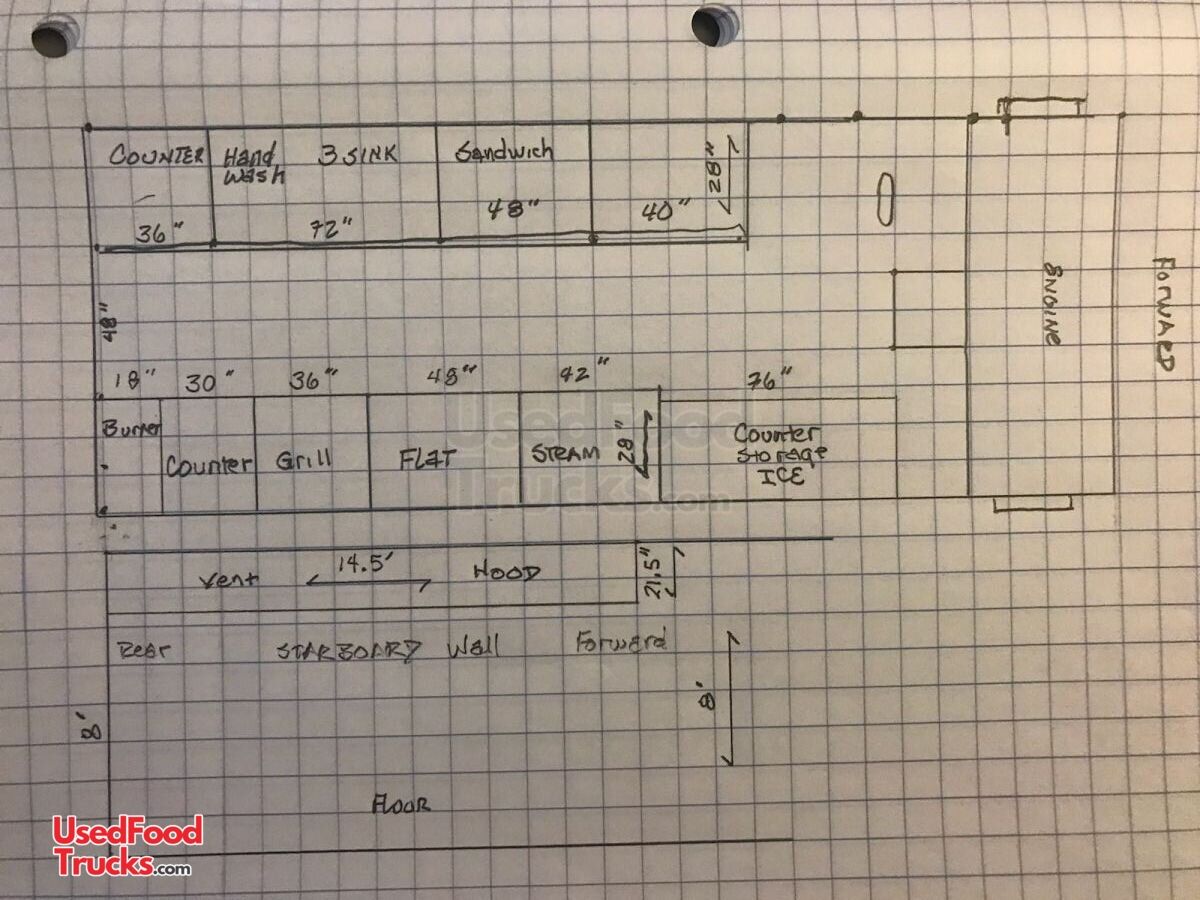 COUNTER
Hand
Wash
3 SINK
Sandwich
28"
36"
72"
48"
40"
ENGINE
FORWARD
48"
18"
30"
36"
48"
42"
76"
Burner
Counter
Grill
FLAT
STEAM
28"
Counter
Storage
ICE
Used Food
Trucks.com
Vent
14.5'
HOOD
21.5"
Rear
STARBOARD Wall
Forward
8'
8'
FLOOR
UsedFood
Trucks.com